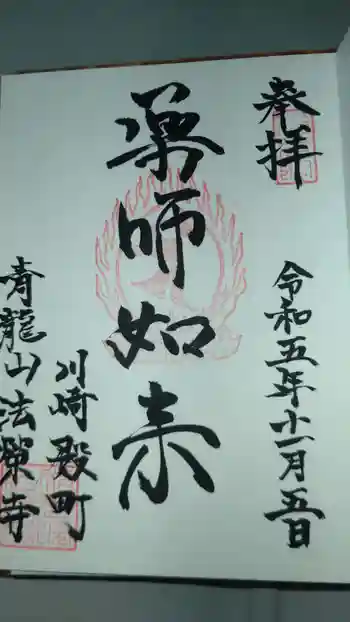 奉拝
令和五年十一月五日
薬師如来
川崎殿町
青龍山法榮寺